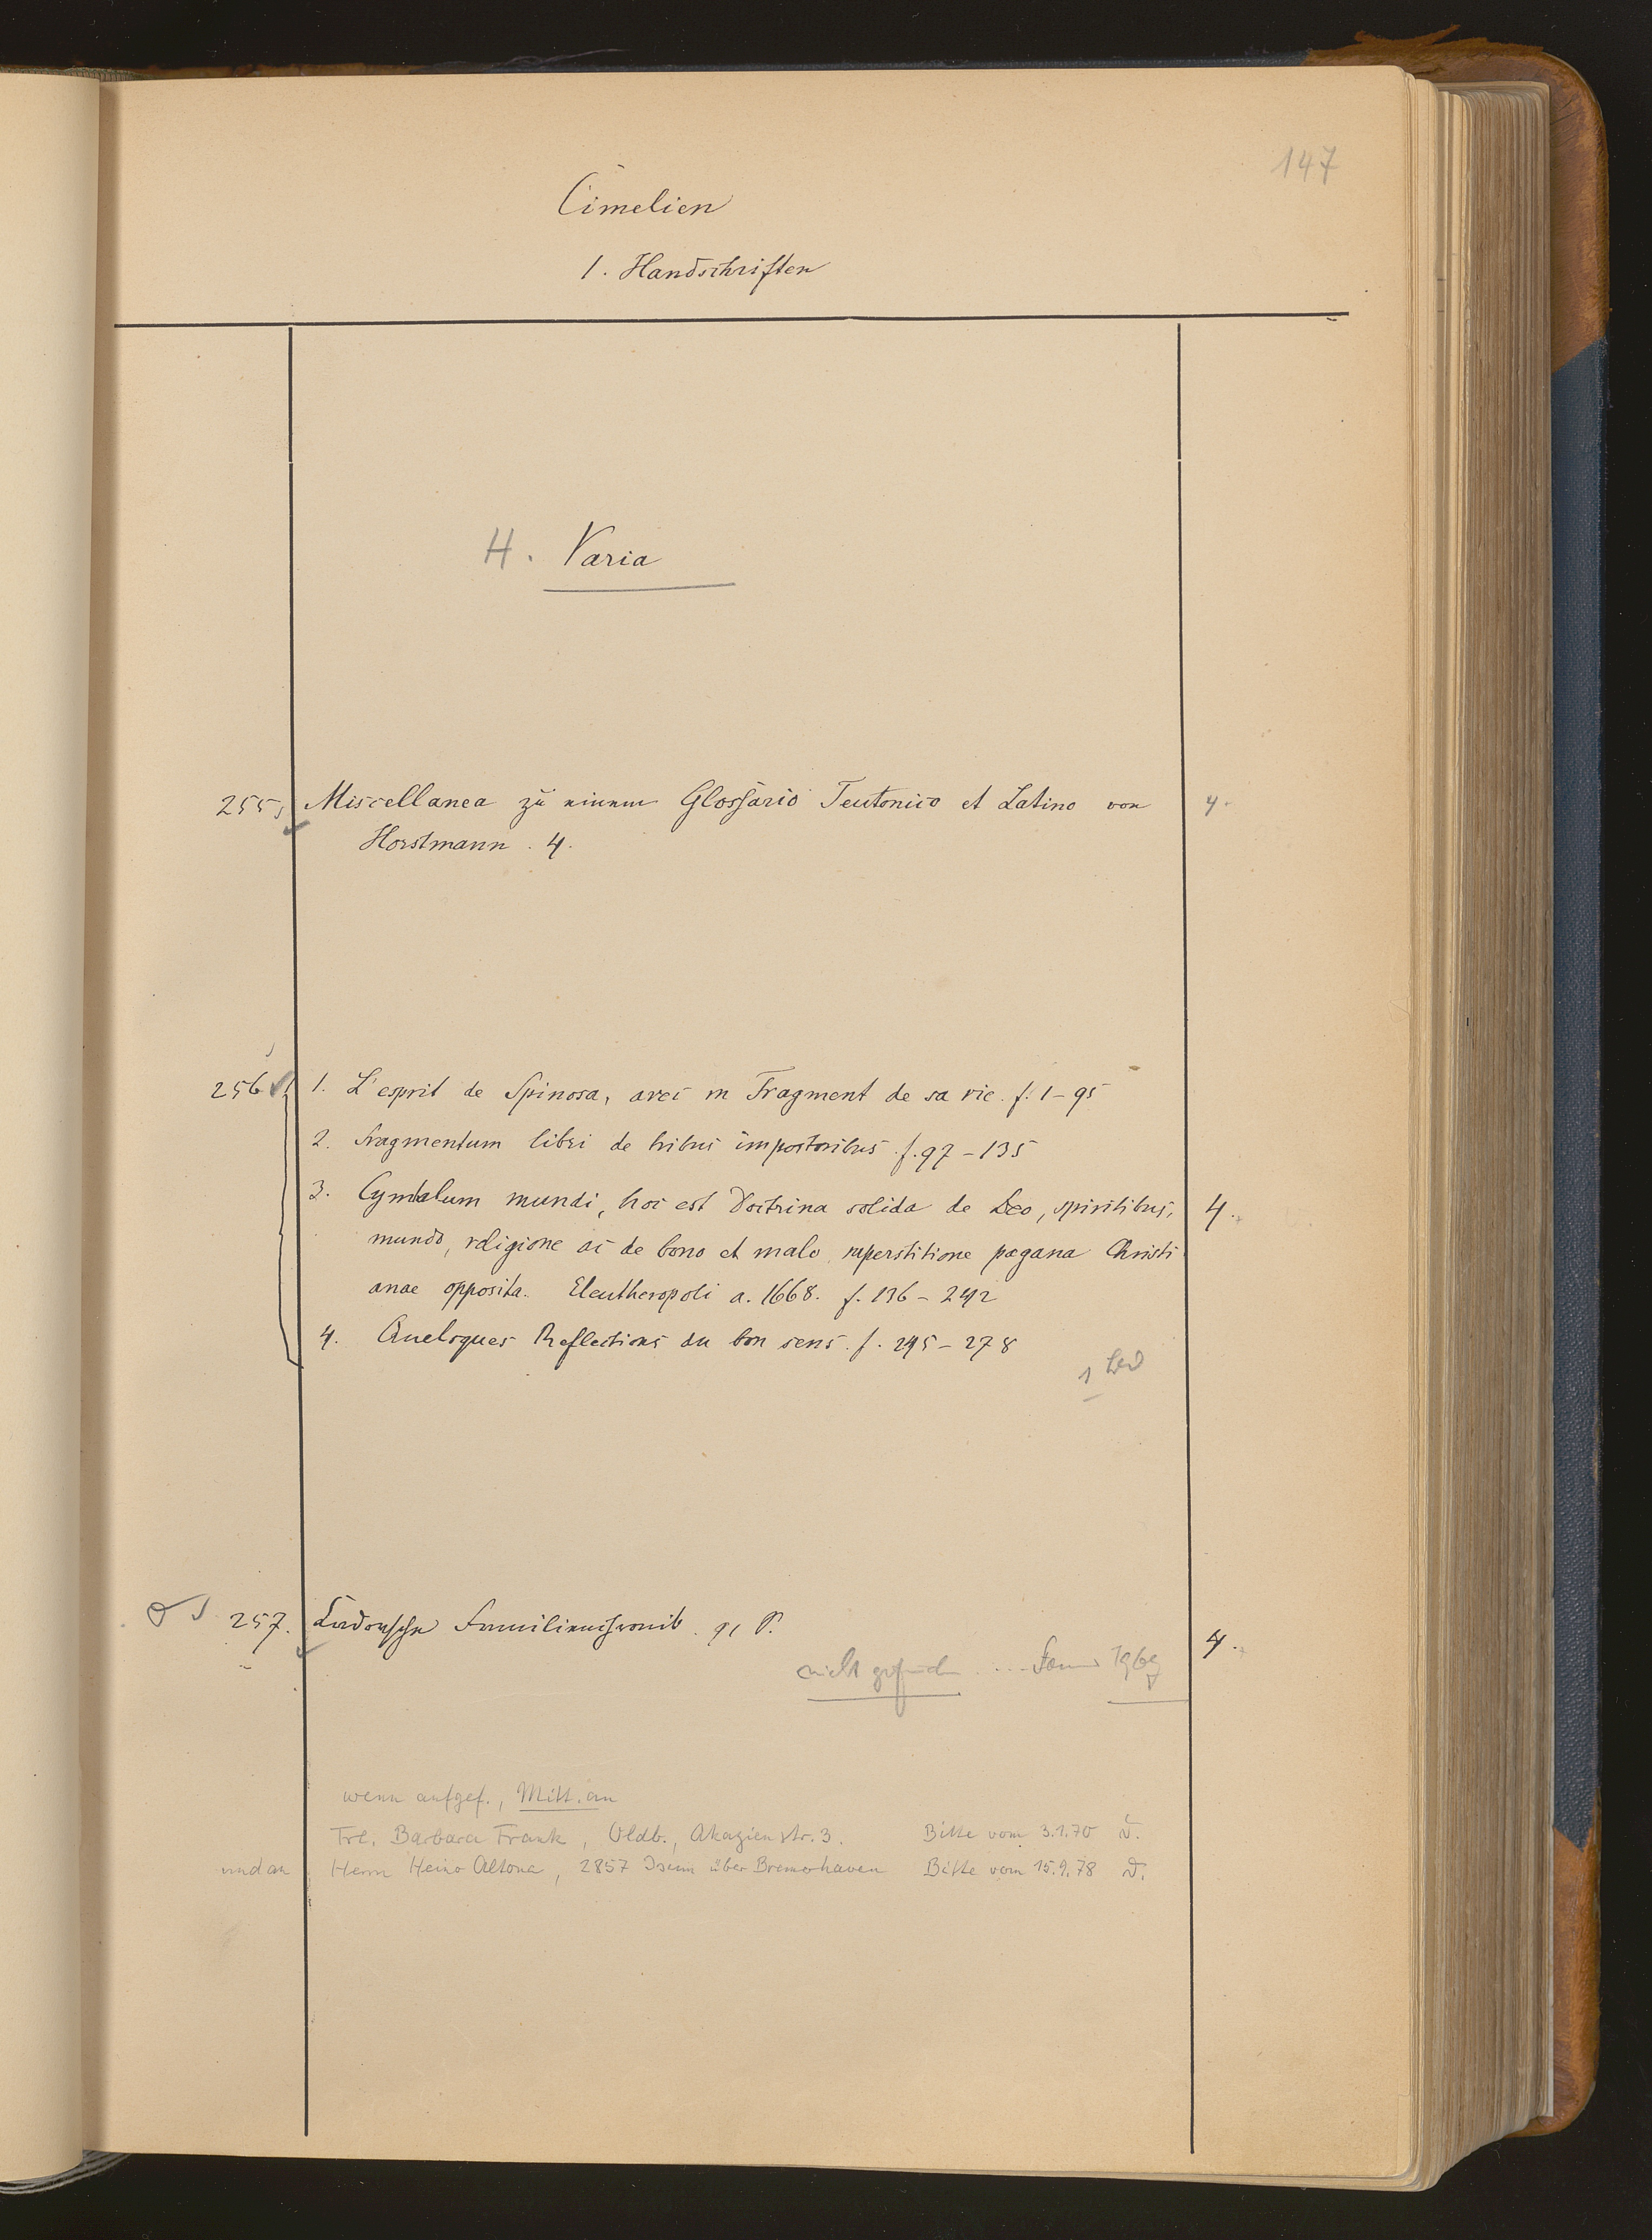 147
Cimelien
1. Handschriften
H. Varia
255, Miscellanea zu einem Glossario Teutonico et Latino von 4.
Horstmann. 4.
256 1. L'esprit de Spinosa, avec un Fragment de sa vie. f. 1-95
2. Fragmentum libri de tribus impostoribus f. 97-135
3. Cymbalum mundi, hoc est Doctrina solida de Deo, spiritibus, 4.
mundo, religione ac de bono et malo, superstitione pagana Christi
anae opposita. Eleutheropoli a. 1668. f. 136-242
4. Quelques Reflections du bon sens. f. 245-278
1 Bd
257. Familienchronik. 91 P. 4.
nicht gefunden 1969
wenn aufgef., Mitt. an
Frl. Barbara Frank, Oldb., Akazienstr. 3. Bitte vom 3.1.70
und an Herrn Heino Altona, 2857 über Bremerhaven Bitte vom 15.9.78